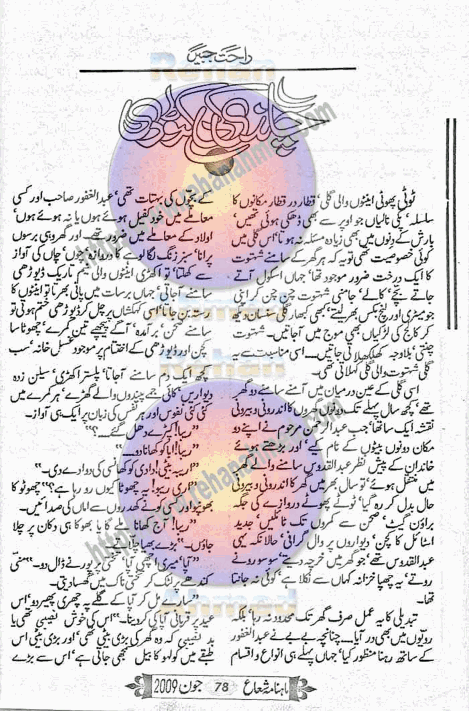 راحت جبیں
چاندی کی کٹوری
ٹوٹی پھوٹی اینٹوں والی گلی، قطار در قطار مکانوں کا
سلسلہ، پکی نالیاں جو اوپر سے بھی ڈھکی ہوئی تھیں،
بارش کے دنوں میں بھی زیادہ مسئلہ نہ ہوتا، اس گلی میں
کوئی خصوصیت تھی تو یہ کہ ہر گھر کے سامنے شہتوت
کا ایک درخت ضرور موجود تھا، جہاں اسکول آتے
جاتے بچے، کالے، جامنی شہتوت چن چن کر اپنی
جیومیٹری اور لنچ بکس بھر لیتے، کبھی کبھار گلی سنسان ہو
کر کالج کی لڑکیاں بھی موج میں آجاتیں۔ شہتوت
چنتیں، بلاوجہ کھلکھلائی جاتیں۔ اس مناسبت سے یہ
گلی شہتوت والی گلی کہلاتی تھی۔
اس گلی کے عین درمیان میں آمنے سامنے دو گھر
تھے، کچھ سال پہلے تک دونوں گھروں کا اندرونی و بیرونی
نقشہ ایک سا تھا، جب عبدالمنان مرحوم نے اپنے دو
مکان دونوں بیٹوں کے نام کیے، اور بڑھتے ہوئے
خاندان کے پیش نظر عبدالقدوس سامنے والے گھر
میں منتقل ہوئے، تو سال بھر میں گھر کا اندرونی و بیرونی
حال بدل کر رہ گیا، ٹوٹے پھوٹے دروازے کی جگہ
براؤن گیٹ، صحن سے کمروں تک ٹائلیں، جدید
اسٹائل کا کچن، دیواروں پر وال گرافی، حالانکہ یہی
عبدالقدوس تھے، جو گھر میں خرچہ دیتے، سو سو روتے
روتے، یہ چھپا خزانہ کہاں سے نکلا ہے، کوئی نہ جانتا
تھا۔
تبدیلی کا یہ عمل صرف گھر تک محدود نہ رہا، بلکہ
رویوں میں بھی در آیا۔ چنانچہ بے بے نے عبدالغفور
کے ساتھ رہنا منظور کیا، جہاں پہلے ہی انواع و اقسام
کے بچوں کی بہتات تھی، عبدالغفور صاحب اور کسی
معاملے میں خود کفیل ہوئے ہوں یا نہ ہوئے ہوں،
اولاد کے معاملے میں ضرور تھے اور گھر وہی برسوں
پرانا، سبز زنگ لگا لوہے کا دروازہ چوں، چاں کی آواز
سے کھلتا، تو اکھڑی اینٹوں والی نیم تاریک ڈیوڑھی
سامنے آجاتی، جہاں برسات میں پانی بھرتا تو اینٹوں کا
رستہ بن جاتا، اس کہکشاں پر چل کر ڈیوڑھی ختم ہوتی تو
سامنے صحن، برآمدہ، آگے پیچھے تین کمرے، چھوٹا سا
کچن اور ڈیوڑھی کے اختتام پر موجود غسل خانہ، سب
کچھ ایک دم سامنے آجاتا، پلستر اکھڑی، سیلن زدہ
دیواریں، کائی جمے پیندوں والے گھڑے، ہر کمرے میں
کئی کئی نفوس اور ہر نفس کی زبان پر ایک ہی آواز۔
"ربیبا! کپڑے دھل گئے۔۔۔؟"
"ربیبا! کھانا دو۔"
"ربیبہ بیٹی! دادی کو کھانسی کی دوا دے دی۔"
"اری ربیبہ! یہ چھوٹا کیوں رو رہا ہے؟" چھوٹو کا
بھونپو اور کسی کونے کھدرے سے اماں کی صدائیں۔
"ربیبا! آج کھانا ملے گا یا بھوکا ہی دکان پر چلا
جاؤں۔" بڑے بھیا چلاتے۔
"آپا، میرا اچھی آپا! کتنی چور نے ڈال دو۔" منّی
کندھے پر لٹک کر کتنی ناک میں گھسا دیتی۔
"سارے مل کر آپا کے گلے پہ چھری پھیر دو، اس
عید پر قربانی آپا کی کر دینا۔" اس کی خوش نصیبی تھی یا
بد نصیبی کہ وہ گھر کی بڑی بیٹی تھی، اور بڑی بیٹی اس
طبقے میں کولہو کا بیل سمجھی جاتی ہے، اس سے بڑے
ماہنامہ شعاع 78 جون 2009